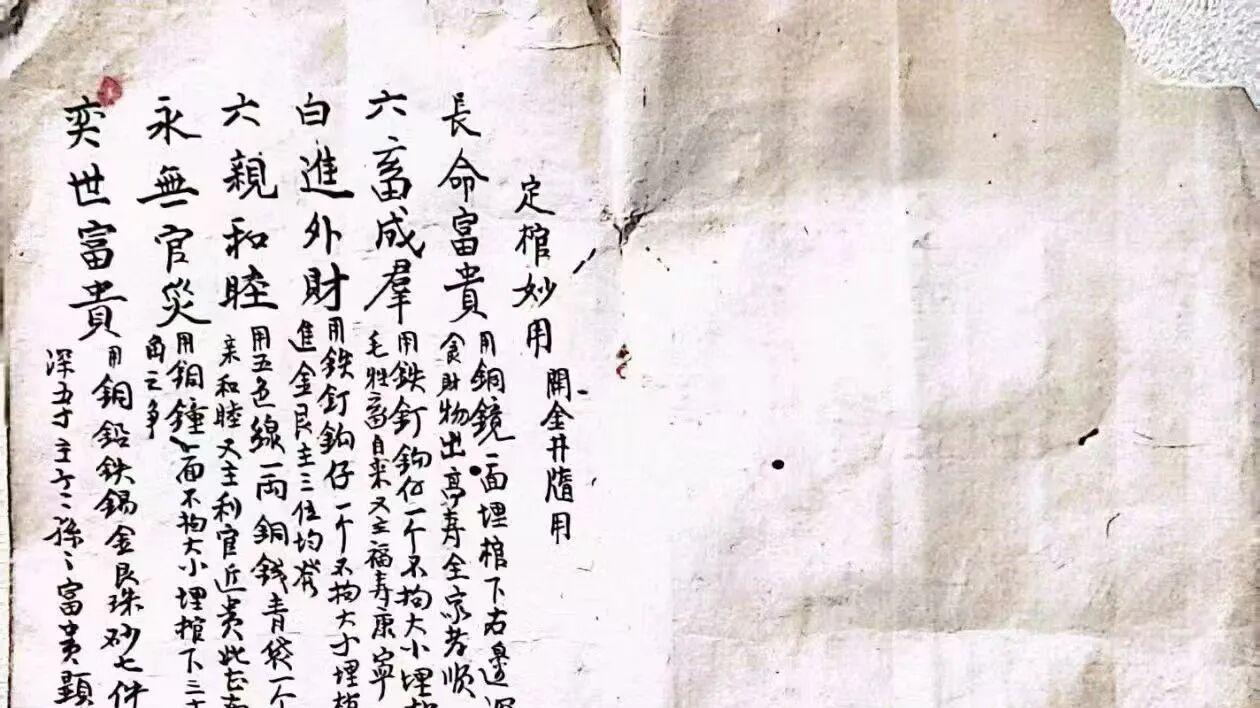 定棺妙用 開金井隨用
長命富貴
用銅鏡一面埋棺下右邊深
食財物出高壽全家孝順
六畜成羣
用鉄釘鈎仔一个不拘大小埋棺
毛牲畜自来又主福寿康寧
白進外財
用鉄釘鈎仔一个不拘大小埋棺
進金艮主三位均發
六親和睦
用五色線一両銅銭青袋一个
亲和睦又主利官近貴此
永無官災
用銅鐘一面不拘大小埋棺下三寸
角之争
奕世富貴
用銅鉛鉄錫金艮珠砂七件
深五寸主子〻孫〻富貴顕